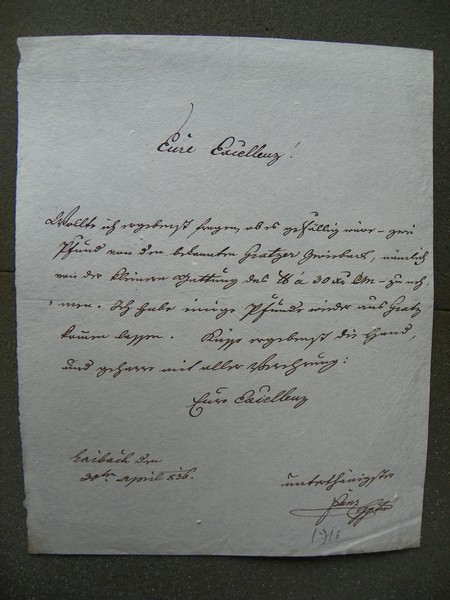 Eure Excellenz!
Wollte ich ergebenst fragen, ob es gefällig wäre – zwei
Pfund von dem bekannten Gratzer Zwieback, nämlich
von der kleinern Gattung das ℔ à 30 Xr CM – zu neh-
men. Ich habe einige Pfunde wieder aus Gratz
kommen lassen. Küsse ergebenst die Hand,
und geharre mit aller Verehrung:
Eure Excellenz
Laibach den
30ten April 836.
unterthänigster